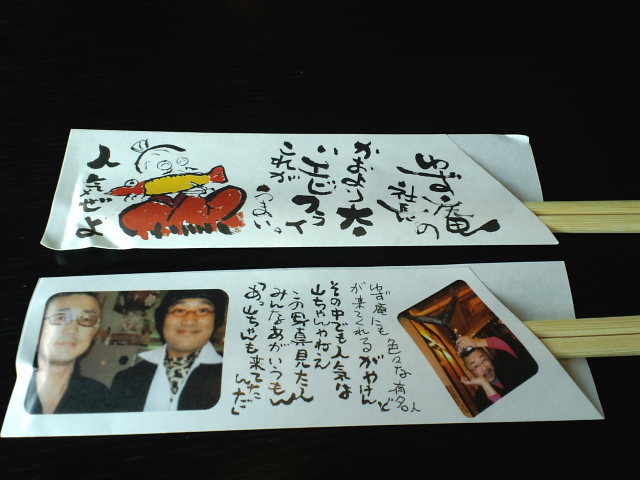 ゆず庵の
社長
かおより太
いエビフライ
これが
うまい。
人気ぜよ
ゆず庵にも色々な有名人
が来てくれるがやけんど
その中でも人気は
山ちゃんやねえ
この写真見たら
みんなあがいうもん
「あっ山ちゃんも来てた
んだ」